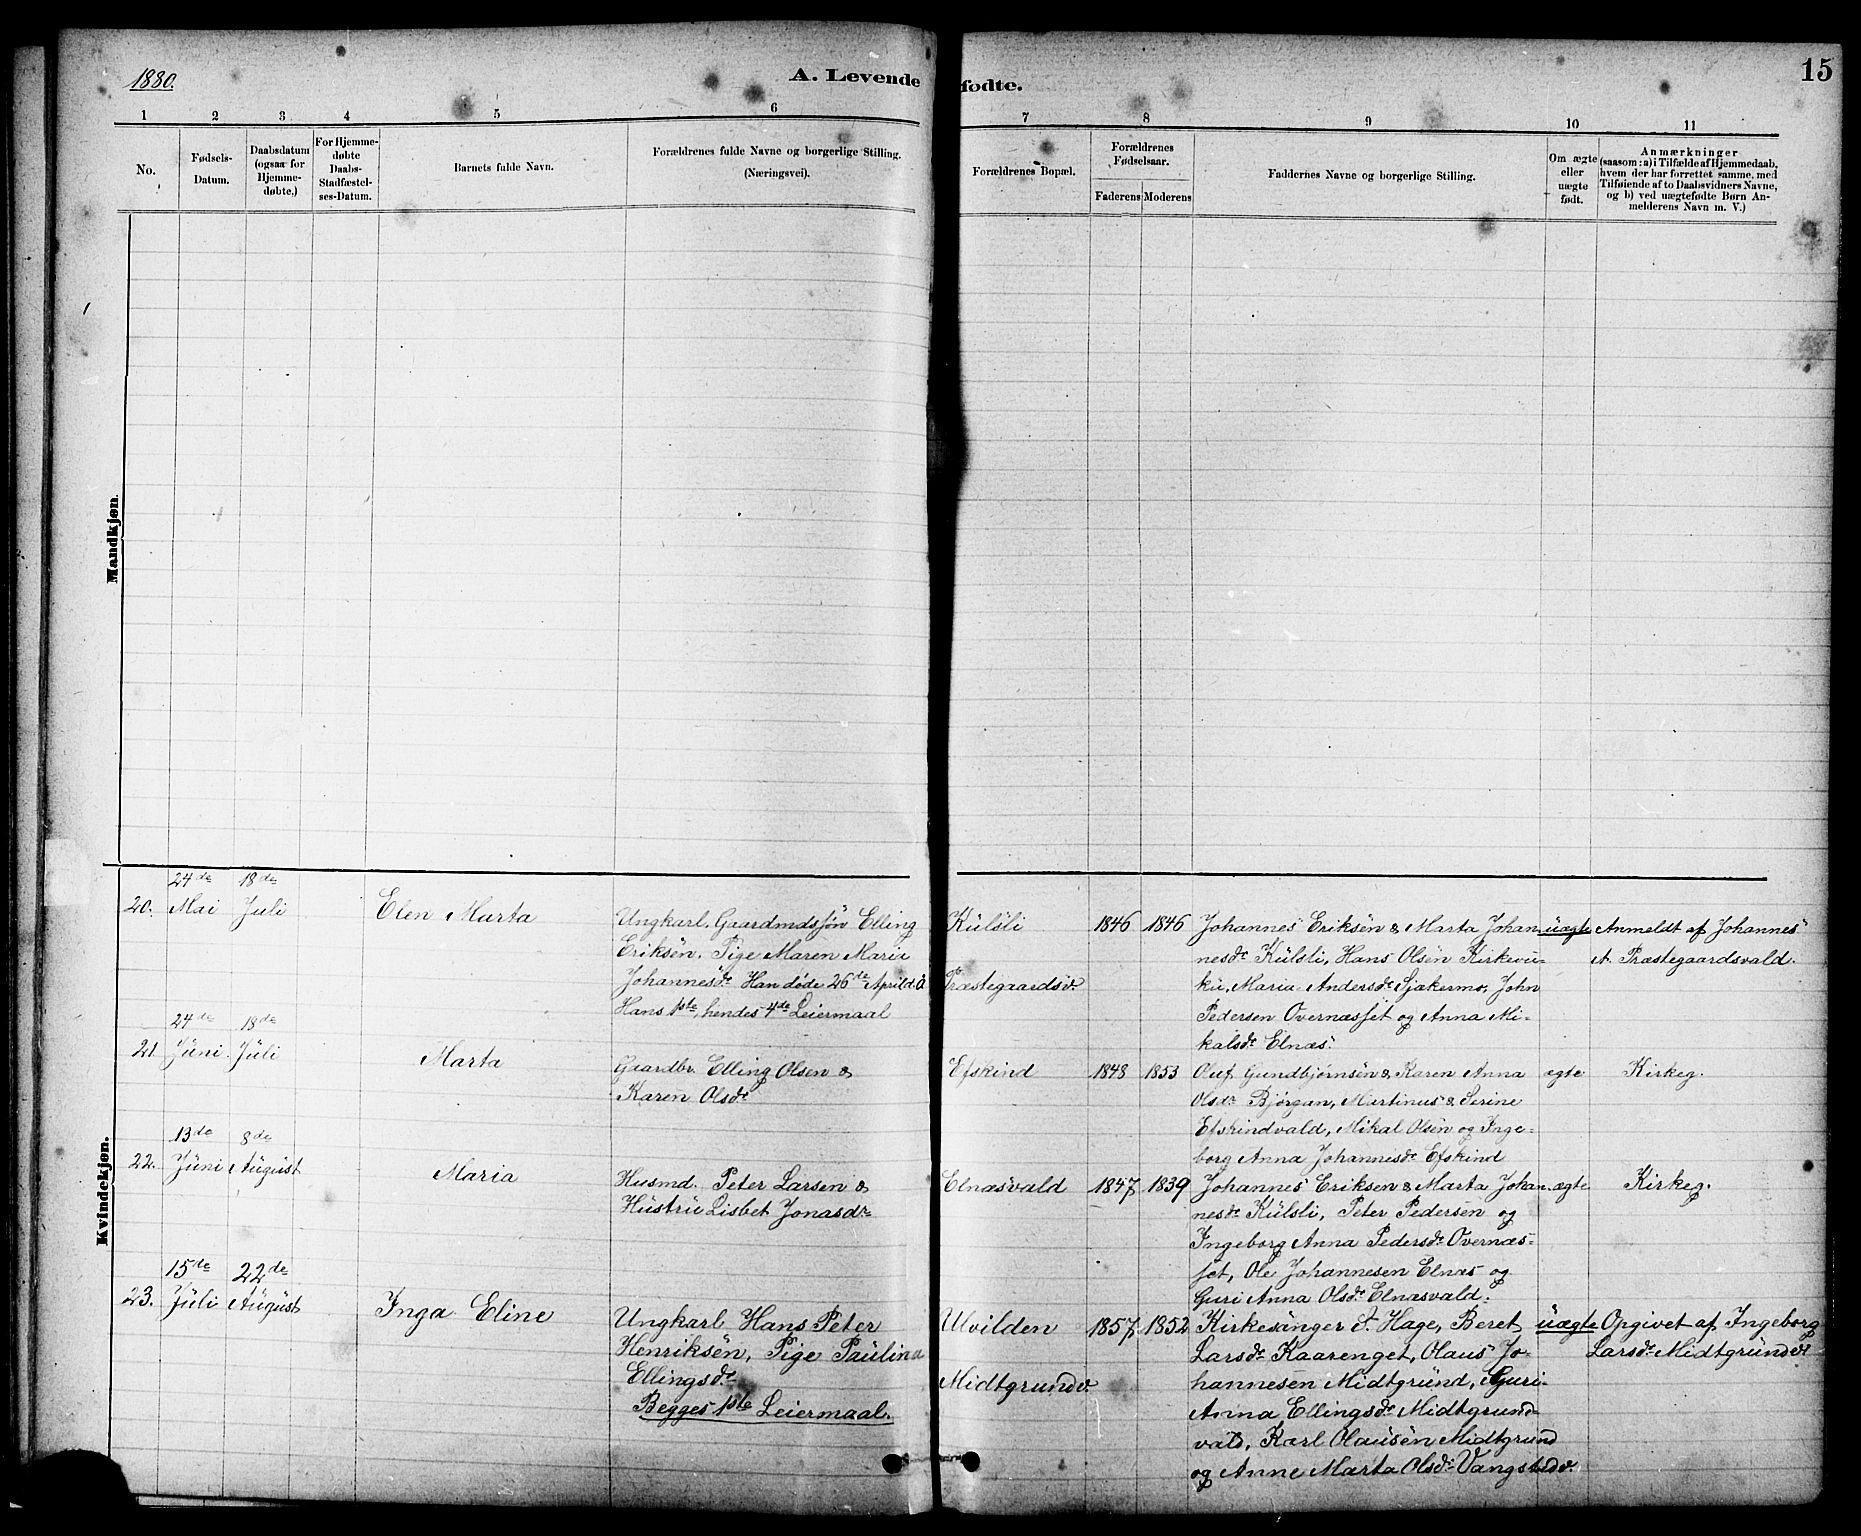 1880.
A. Levende fødte.
15
1 2 3 4 5 6 7 8 9 10 11
No.
Fødsels-
Datum.
Daabsdatum
(ogsaa for
Hjemme-
døbte.)
For Hjemme-
døbte
Daabs-
Stadfæstel-
ses-Datum.
Barnets fulde Navn.
Forældrenes fulde Navne og borgerlige Stilling.
(Næringsvei).
Forældrenes Bopæl.
Forældrenes
Fødselsaar.
Faderens Moderens
Faddernes Navne og borgerlige Stilling.
Om ægte
eller
uægte
født.
Anmærkninger
(saasom: a) i Tilfælde af Hjemmedaab,
hvem der har forrettet samme, med
Tilføiende af to Daabsvidners Navne,
og b) ved uægtefødte Børn An-
melderens Navn m. V.)
Mandkjøn.
Kvindekjøn.
20.
24de
Mai
18de
Juli
Elen Marta
Ungkarl. Gaardmdssøn Elling
Eriksen, Pige Maren Maria
Johannesdr. Han døde 26de April d. A.
Hans 1ste, hendes 4de Leiermaal
Külsli
Præstegaardsv.
1846 1846
Johannes Eriksen & Marta Johan-
nesdr Külsli, Hans Olsen Kirkevu-
ku, Maria Andersdr Sjækermo, John
Pedersen Overnæsset og Anna Mi-
kalsdr Elnæs.
uægte
Anmeldt af Johannes
A. Præstegaardsvald.
21.
24de
Juni
18de
Juli
Marta
Gaardbr. Elling Olsen &
Karen Olsdr
Efskind
1848 1853
Oluf Gundbjørnsen & Karen Anna
Olsdr Bjørgan, Martinus & Serine
Efskindvald, Mikal Olsen og Inge-
borg Anna Johannesdr Efskind
ægte
Kirkeg.
22.
13de
Juni
8de
August
Maria
Husmd. Peter Larsen &
Hustru Lisbet Jonasdr
Elnæsvald
1847 1839
Johannes Eriksen & Marta Johan-
nesdr Külsli, Peter Pedersen og
Ingeborg Anna Pedersdr Overnæs-
set, Ole Johannesen Elnæs og
Guri Anna Olsdr Elnæsvald.
ægte
Kirkeg.
23.
15de
Juli
22de
August
Inga Eline
Ungkarl Hans Peter
Henriksen, Pige Paulina
Ellingsdr
Begges 1ste Leiermaal.
Ulvilden
Midtgrundv.
1857 1852
Kirkesanger J. Hage, Beret
Larsdr Kaarenget, Olaus Jo-
hannesen Midtgrund, Guri-
Anna Ellingsdr Midtgrund-
vald, Karl Olausen Midtgrund
og Anne Marta Olsdr Vangstadv.
uægte
Opgivet af Ingeborg
Larsdr Midtgrundv.